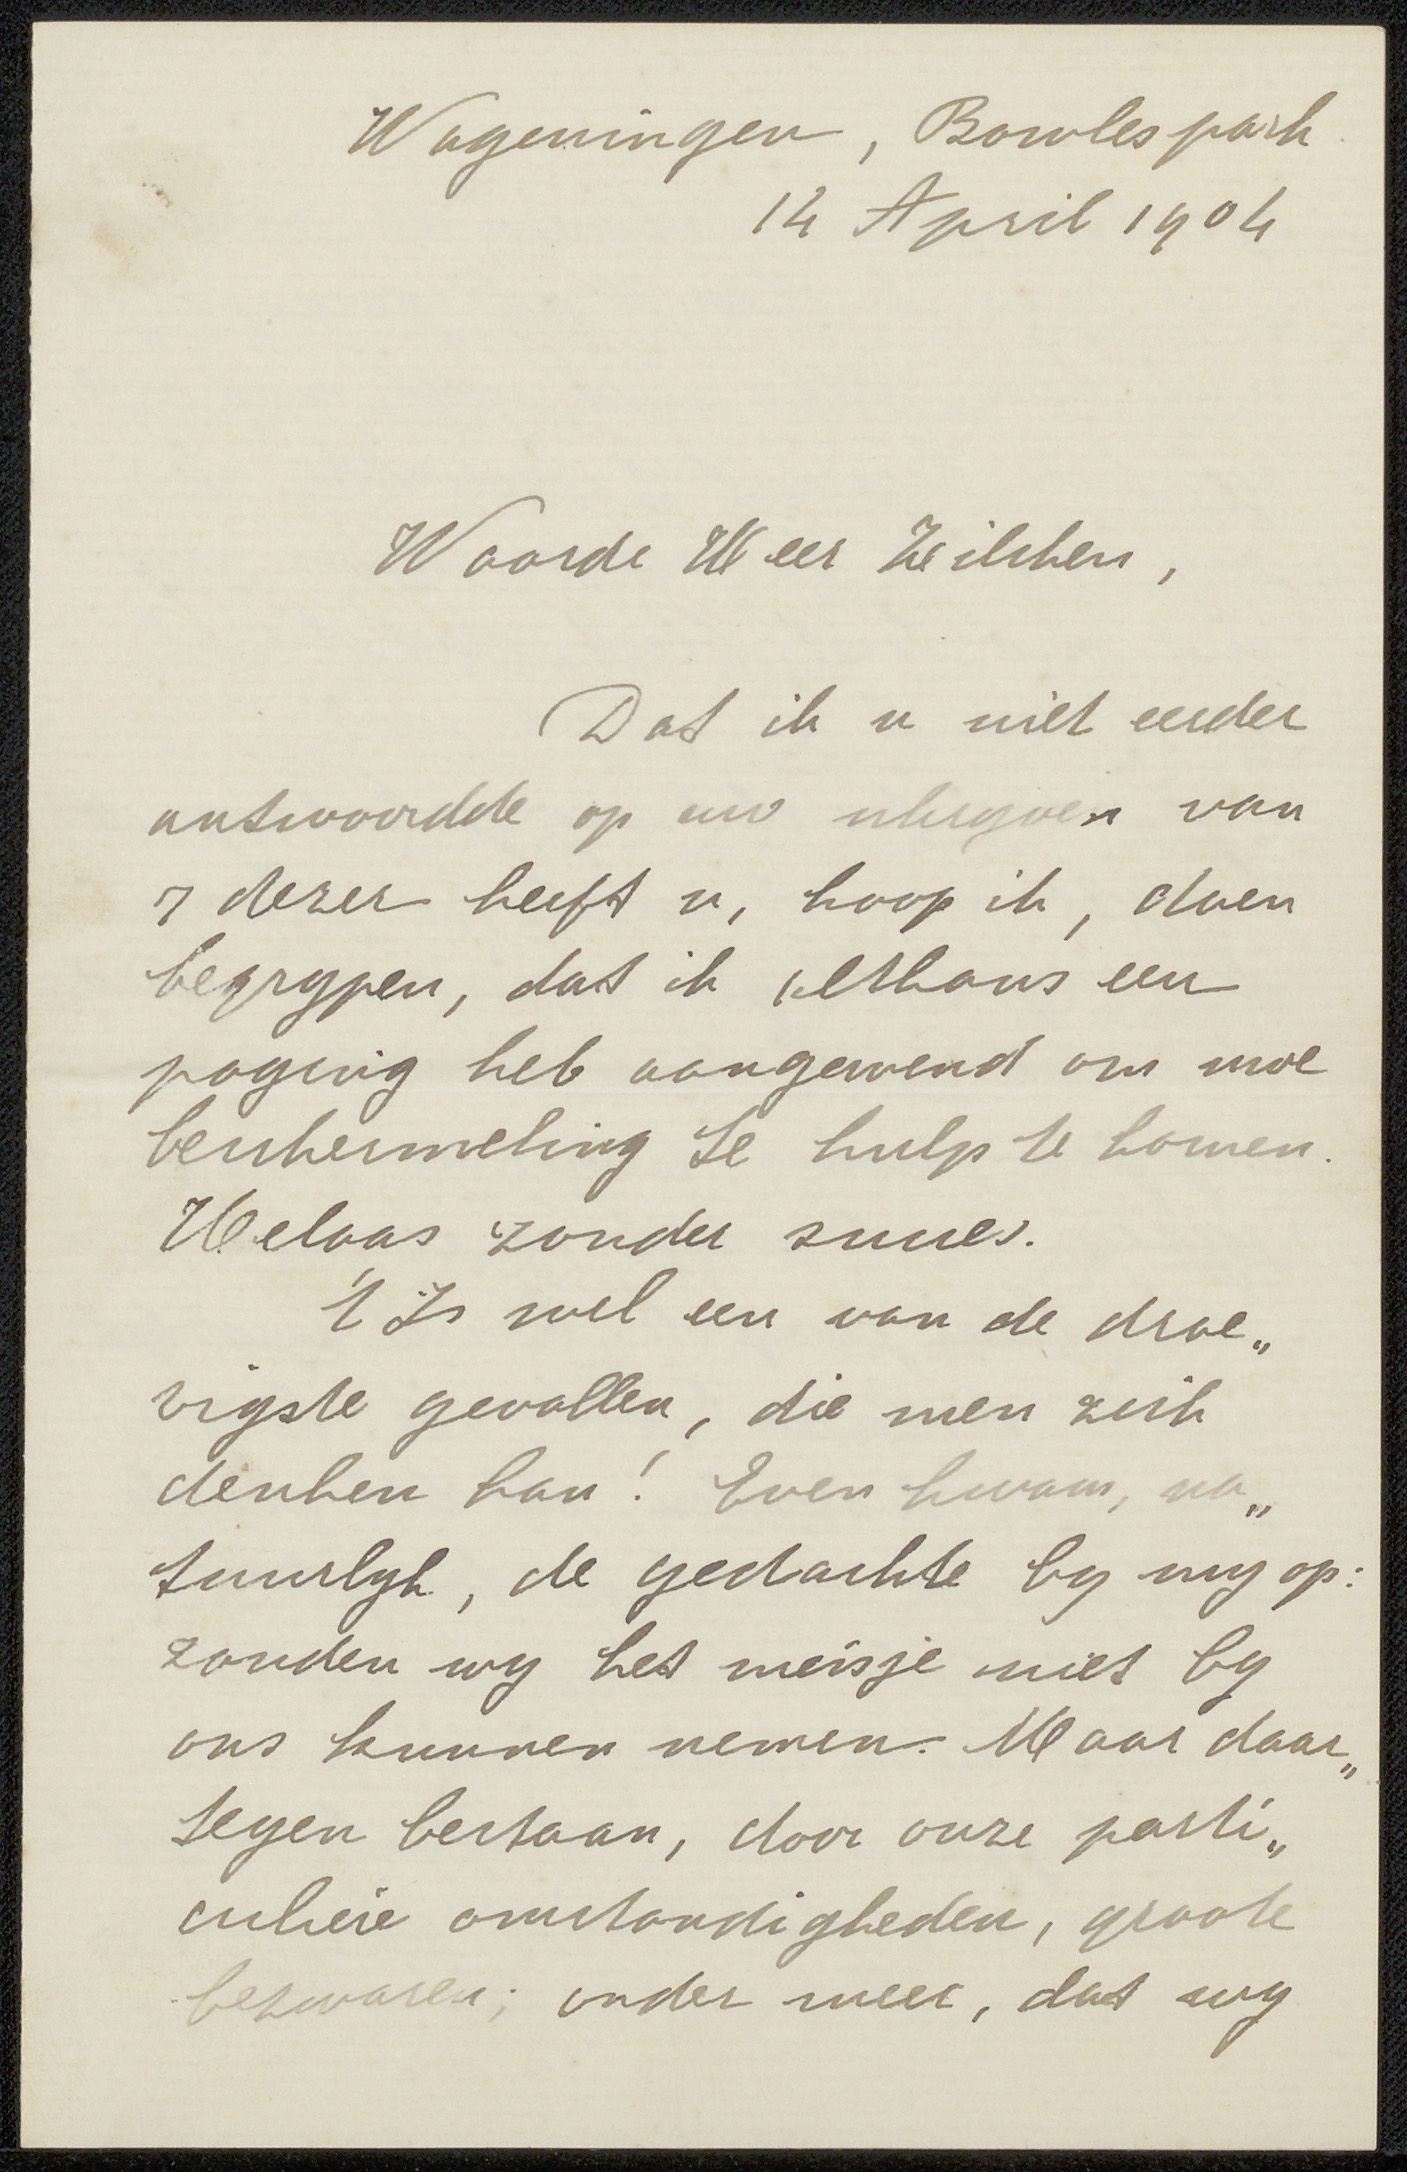 Wageningen, Bowlespark
14 April 1904
Waarde Heer Zilcken,
Dat ik u niet eerder
antwoordde op uw schrijven van
7 dezer heeft u, hoop ik, doen
begrypen, dat ik althans een
poging heb aangewend om uwe
beschermeling te hulp te komen.
Helaas zonder succes.
't Is wel een van de droe„
vigste gevallen, die men zich
denken kan! Even kwam, na„
tuurlyk, de gedachte by my op:
zouden wy het meisje niet by
ons kunnen nemen. Maar daar„
tegen bestaan, door onze parti„
culiere omstandigheden, groote
bezwaren; onder meer, dat wy